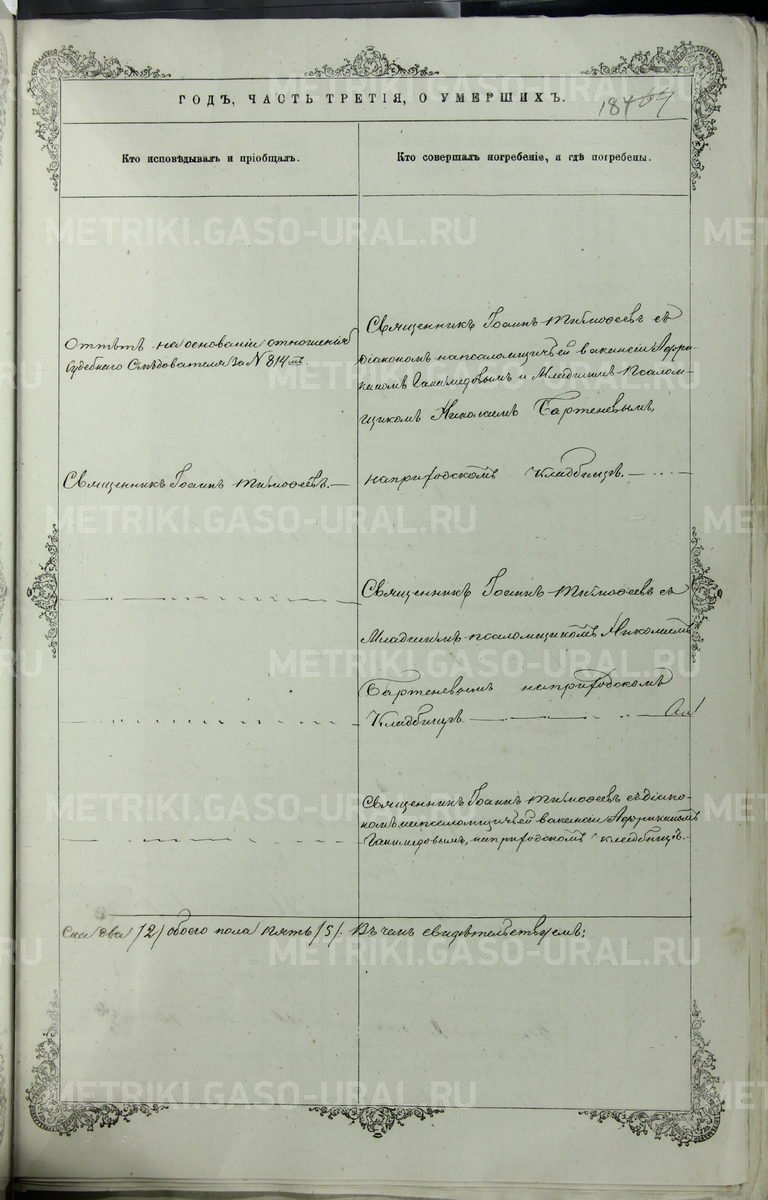 ГОДЪ, ЧАСТЬ ТРЕТІЯ, О УМЕРШИХЪ.
Кто исповѣдывалъ и пріобщалъ.
Кто совершалъ погребеніе, и гдѣ погребены.
Отпѣтъ на основаніи отношенія
Судебнаго Слѣдователя за № 814
Священникъ Іоаннъ Тимофеевъ съ
діакономъ на псаломщичьей вакансіи Африканомъ
Ганимедовымъ и Младшимъ Псаломщикомъ
Николаемъ Бартеневымъ,
Священникъ Іоаннъ Тимофеевъ. —
на приходскомъ кладбищѣ. —
Священникъ Іоаннъ Тимофеевъ съ
Младшимъ псаломщикомъ Николаемъ
Бартеневымъ на приходскомъ
Кладбищѣ —
Священникъ Іоаннъ Тимофеевъ съ діакономъ
на псаломщичьей вакансіи Африканомъ
Ганимедовымъ, на приходскомъ кладбищѣ. —
два /2/ обоего пола пять /5/. Въ чемъ свидѣтельствуемъ:
METRIKI.GASO-URAL.RU